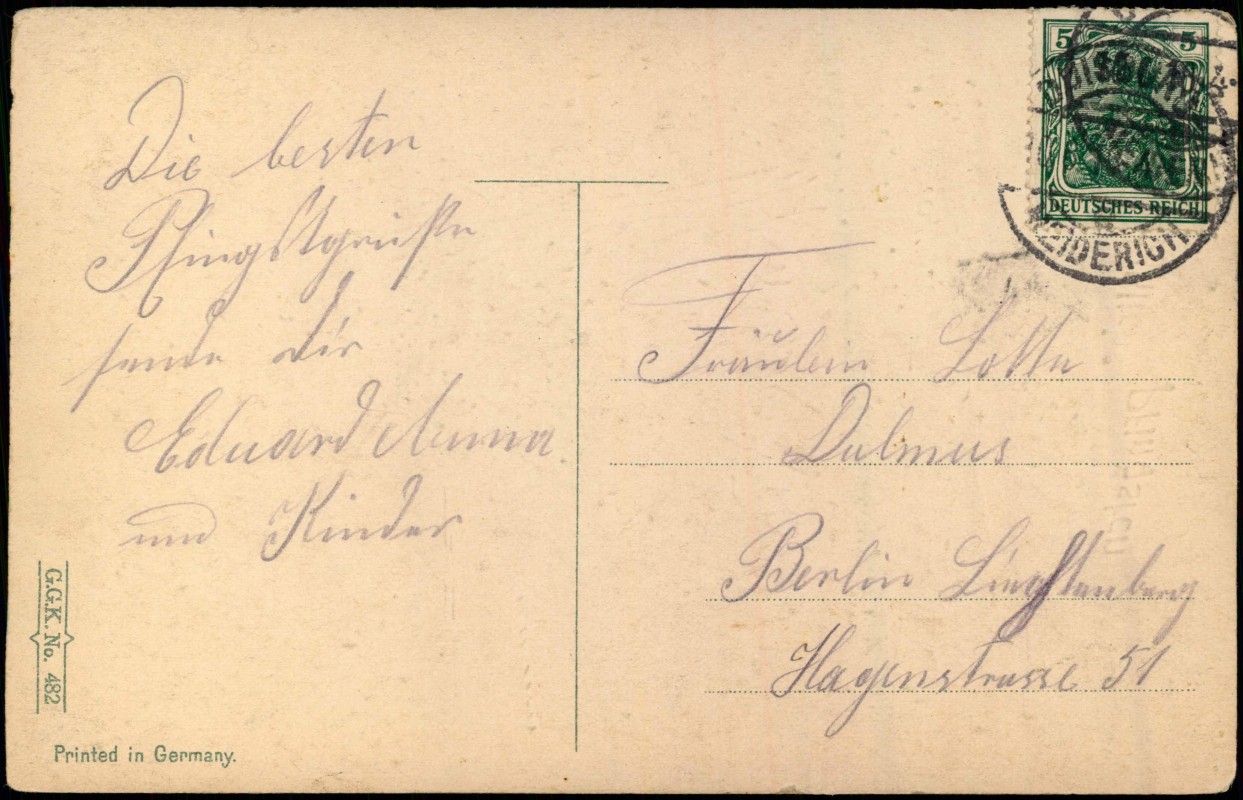 Die besten
Pfingstgrüße
sende dir
Eduard Anna
und Kinder
G.G.K. No. 482
Printed in Germany.
5 5
DEUTSCHES REICH
DUISBURG
MEIDERICH
Fräulein Lotte
Dulmus
Berlin Liechtenberg
Hagenstrasse 51